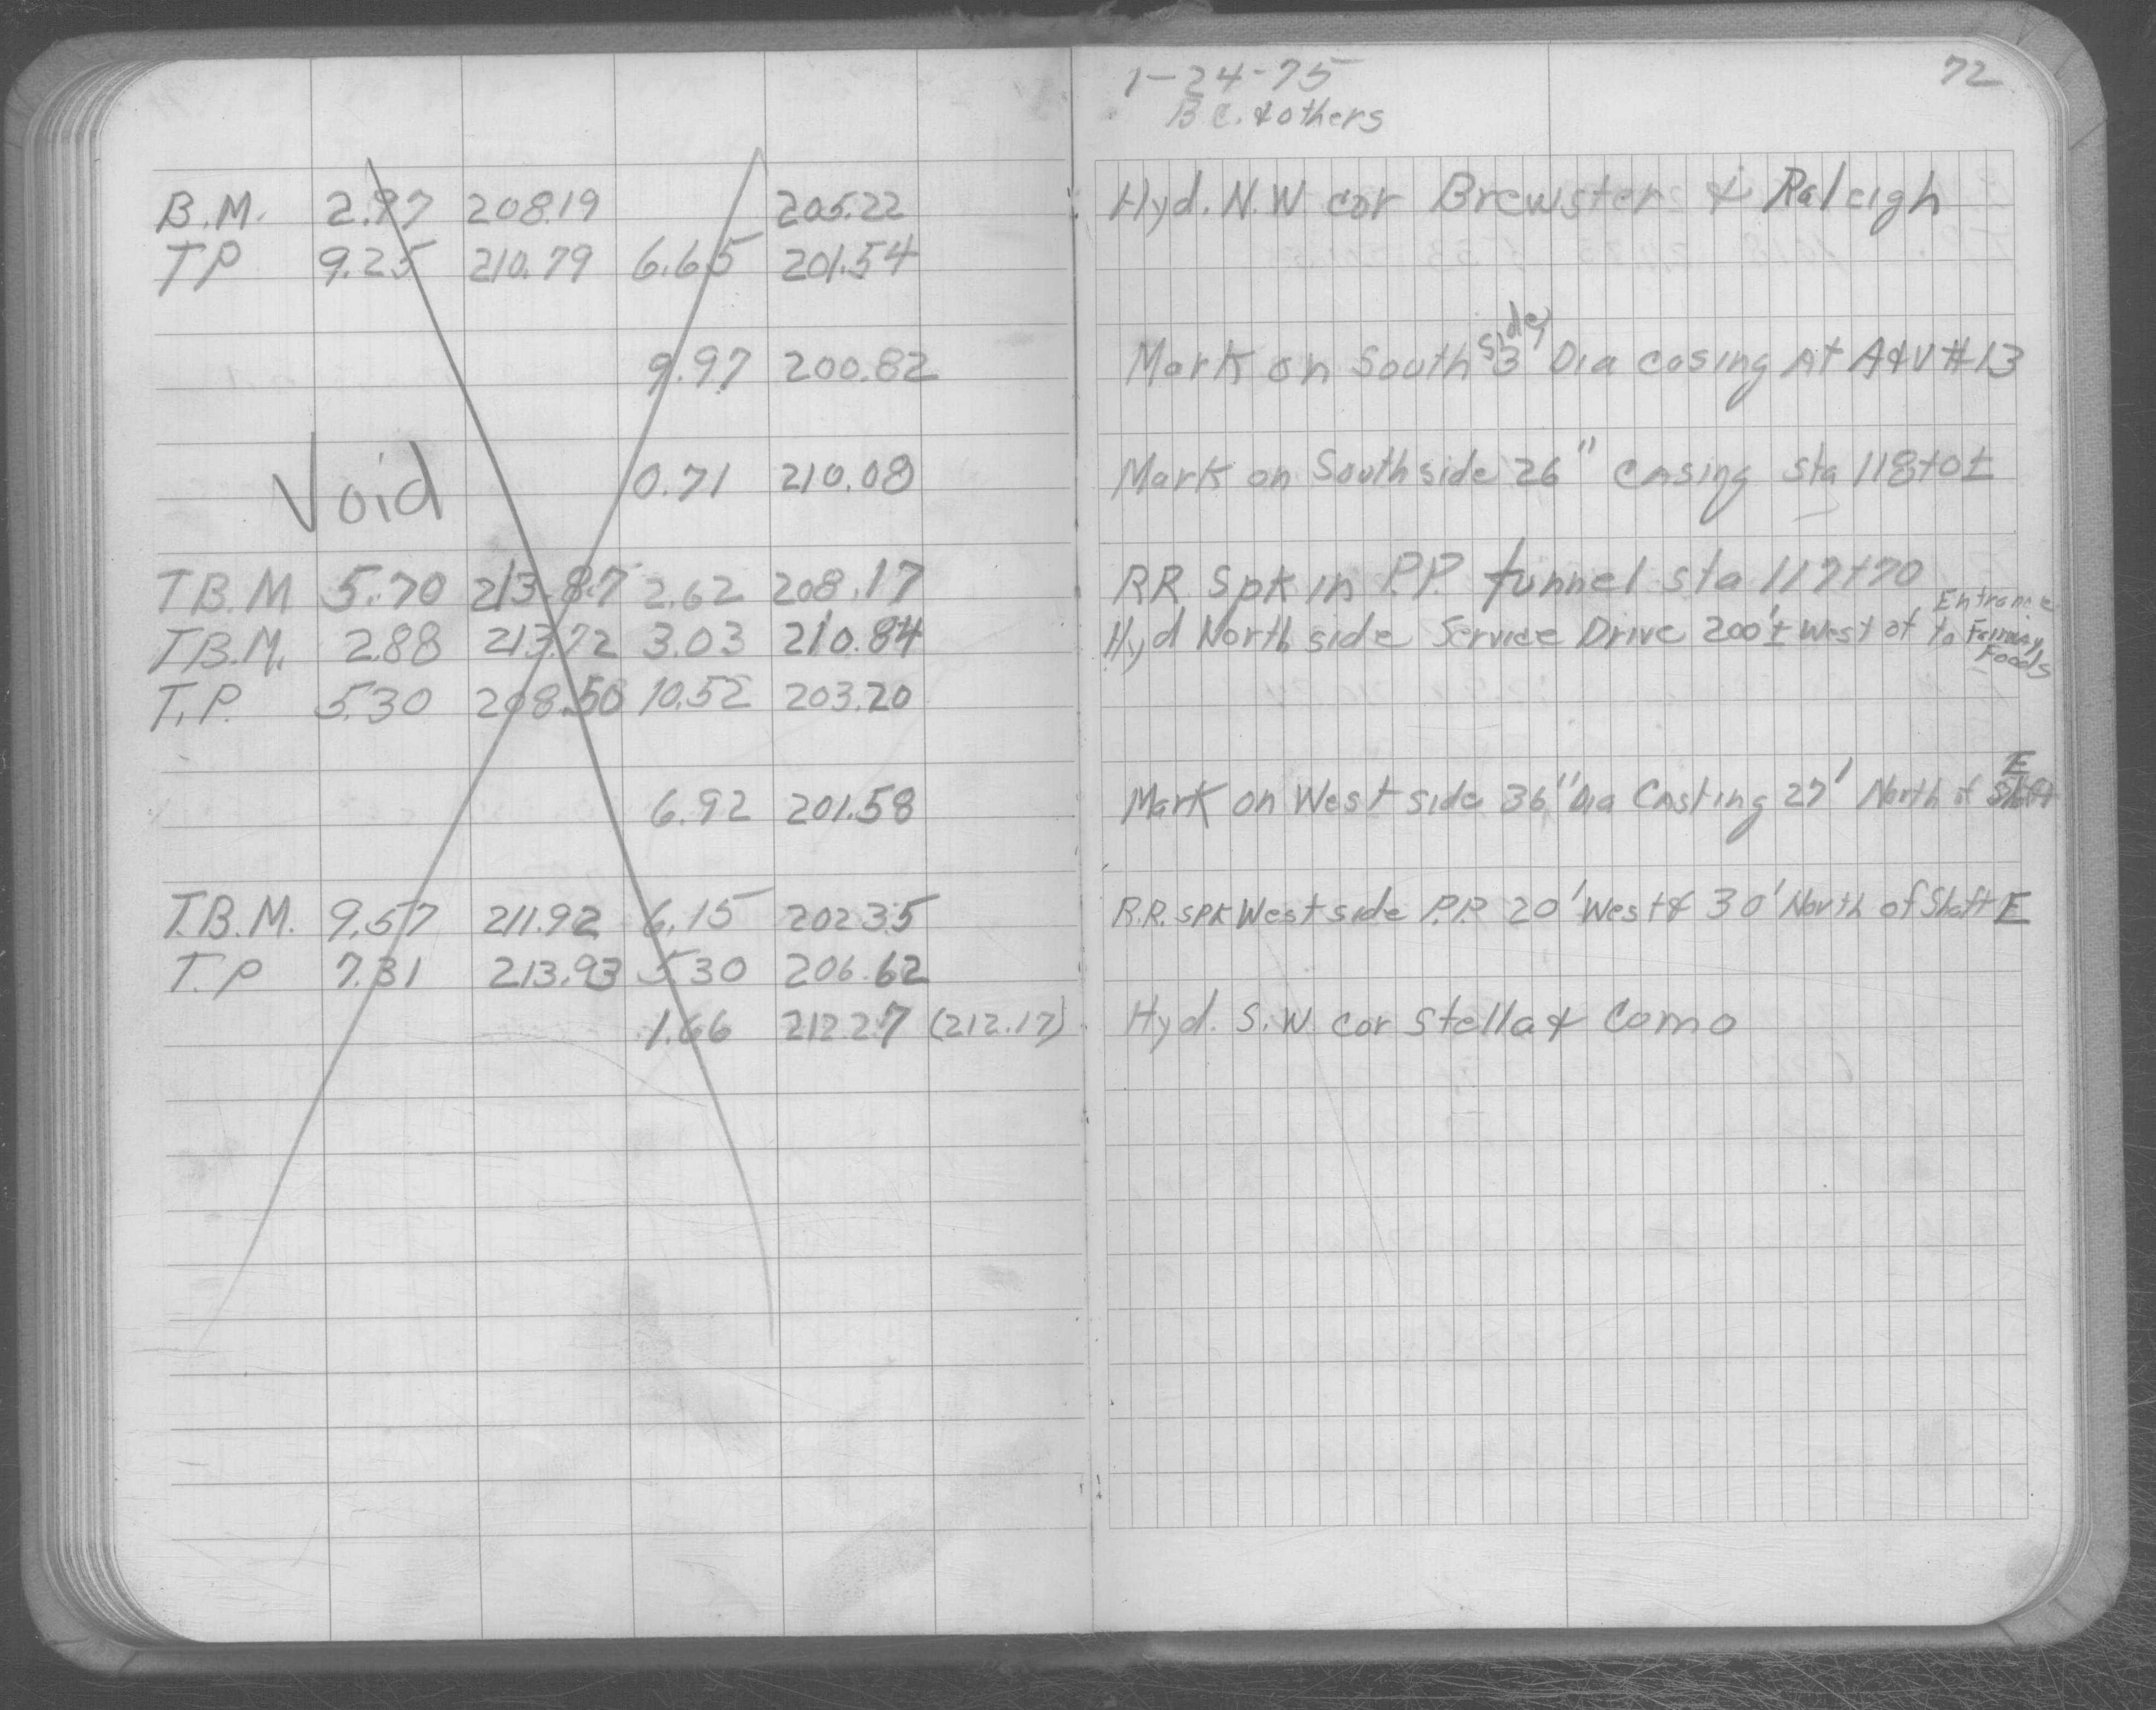 1-24-75
72
B.C. & others
B.M. 2.97 208.19 205.22 Hyd. N.W. cor Brewster & Raleigh
TP 9.25 210.79 6.65 201.54
9.97 200.82 Mark on South side 3' Dia casing At A&V #13
Void 0.71 210.08 Mark on South side 26" casing sta 118+0±
T.B.M 5.70 213.87 2.62 208.17 RR Spk in P.P. tunnel sta 117+70
T.B.M. 2.88 213.72 3.03 210.84 Hyd North side Service Drive 200'± West of Entrance to Fairway Foods
T.P. 5.30 208.50 10.52 203.20
6.92 201.58 Mark on West side 36" Dia Casting 27' North of Shaft E
T.B.M. 9.57 211.92 6.15 202.35 R.R. SPK West side P.P. 20' West & 30' North of Shaft E
T.P 7.31 213.93 5.30 206.62
1.66 212.27 (212.17) Hyd. S.W. cor Stella & Como